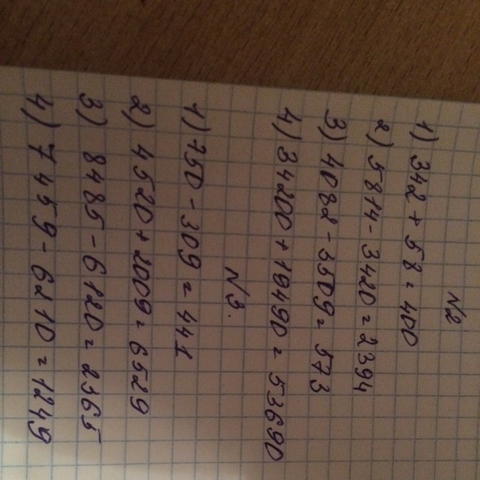 №2
1) 342 + 58 = 400
2) 5814 - 3420 = 2394
3) 4082 - 3509 = 573
4) 34200 + 19490 = 53690
№3.
1) 750 - 309 = 441
2) 4520 + 2009 = 6529
3) 8485 - 6120 = 2365
4) 7459 - 6210 = 1249